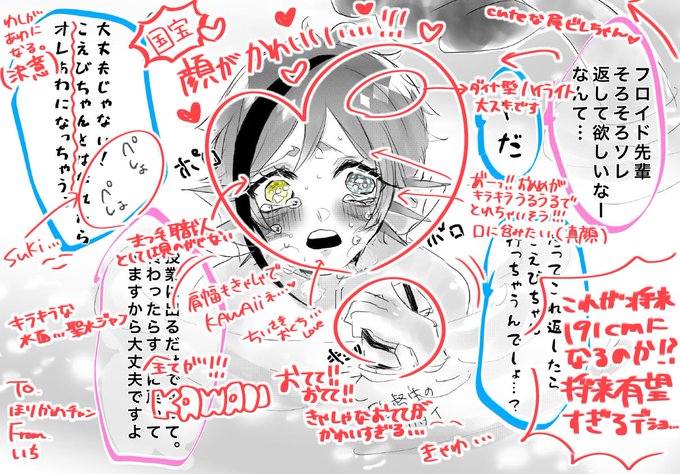 cuteな尾ビレちゃん♡
フロイド先輩
そろそろソレ
返して欲しいなー
なんて…
国宝
顔がかわいいい!!!
わしが
あわに
なる。
(決意)
大丈夫じゃない!
こえびちゃんと
オレあわになっちゃう
ぺしょ
ぺしょ
suki…
ダイヤ型ハイライト
大スキです
だ
おーっ!!おめめが
キラキラうるうるで
とれちゃいそう!!!
口に含みたい(真顔)
ポロ
ポロ
まつ毛職人
としては見のがせない
肩幅もきゃしゃで
KAWAiiネ…
ちいさき
おくち…
Love
だってこれ返したら
こえびちゃん
行っちゃうんでしょ…?
これが将来
191cmに
なるのか!?
将来有望
すぎるデショ…
授業に出るだけ
終わったらすぐに
ますから大丈夫ですよ
キラキラな
水面…聖水ジャン
全てが!!!
KAWAii
おてて!!
おてて!!
きゃしゃなおててが
かわいすぎる…
きゃわ…
To
ほりがめチャン
From
いち